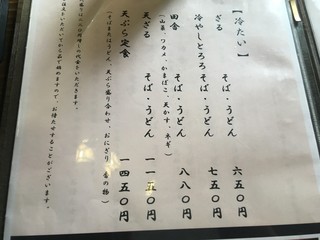 【冷たい】
ざる　そば・うどん　六五〇円
冷やしとろろ　そば・うどん　七五〇円
田舎　そば・うどん　八八〇円
（山菜、ワカメ、かまぼこ、天かす、ネギ）
天ざる　そば・うどん　一一五〇円
天ぷら定食　一四五〇円
（そばまたはうどん、天ぷら盛り合わせ、おにぎり、香の物）
お待たせすることがございます。